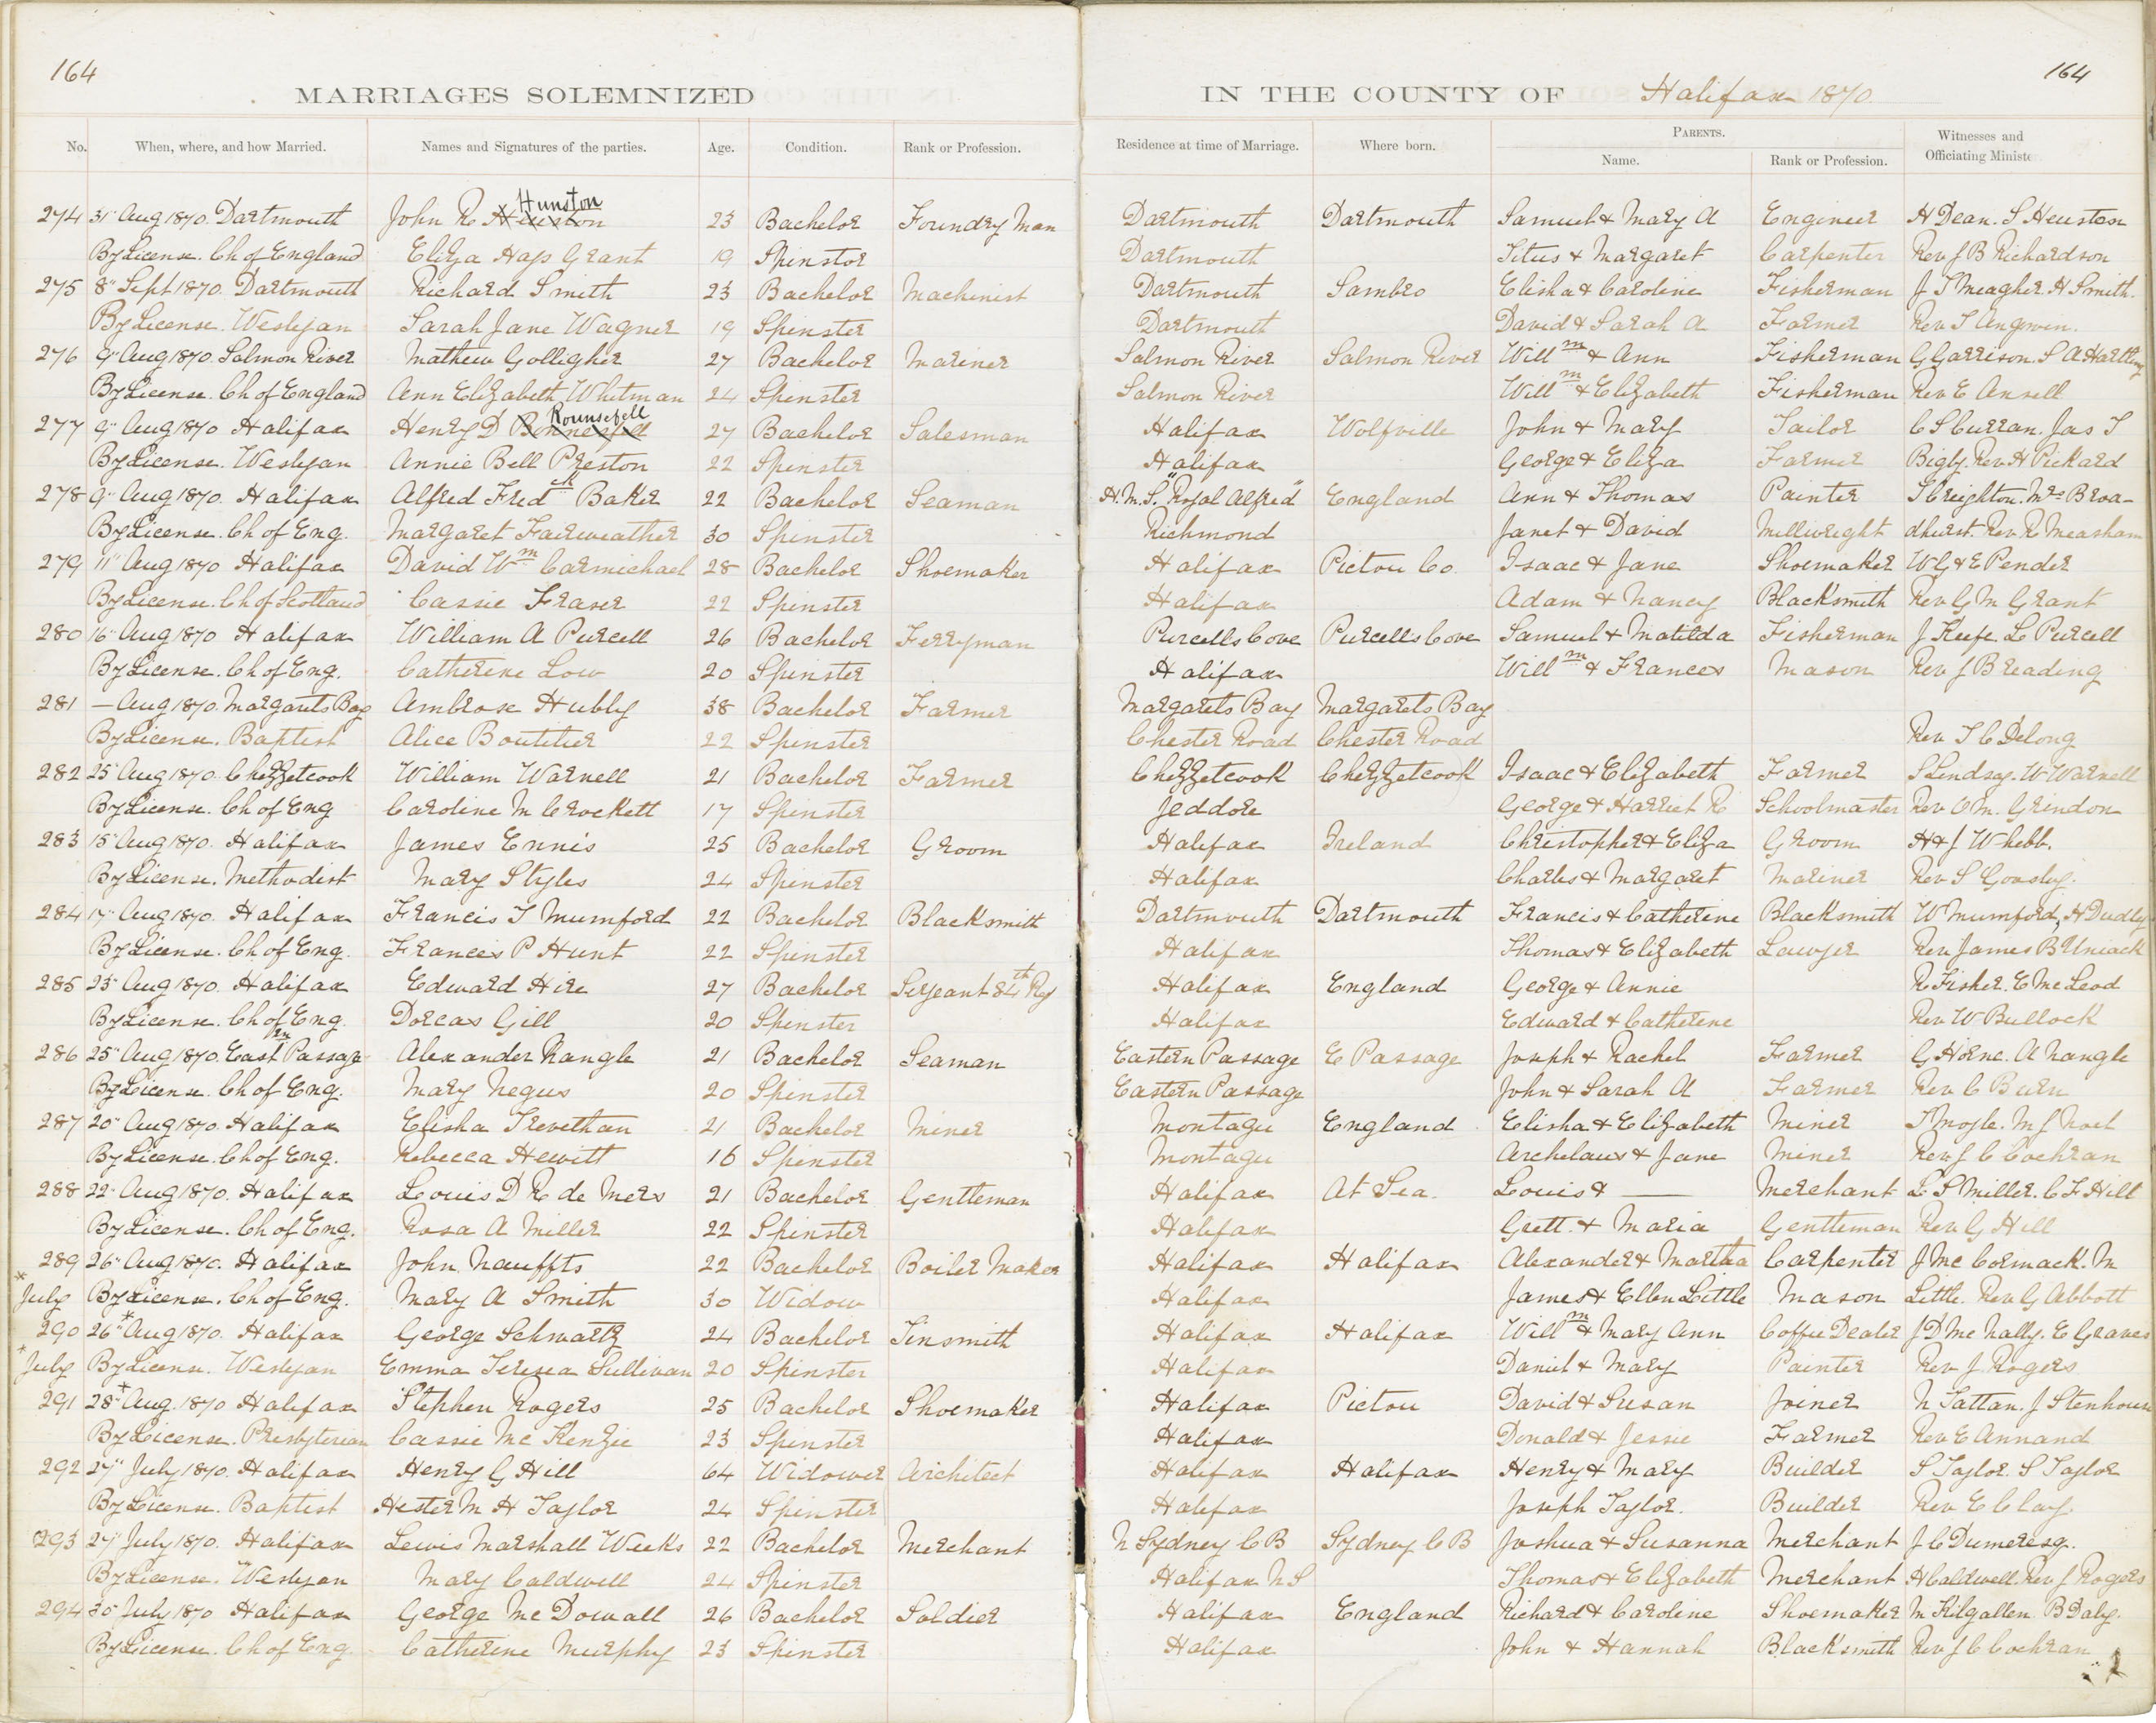 164
MARRIAGES SOLEMNIZED
IN THE COUNTY OF Halifax 1870.
164
No. When, where, and how Married. Names and Signatures of the parties. Age. Condition. Rank or Profession. Residence at time of Marriage. Where born. PARENTS. Name. Rank or Profession. Witnesses and Officiating Minister
Hunston
274 31" Aug 1870. Dartmouth John R Heuston 23 Bachelor Foundry Man Dartmouth Dartmouth Samuel & Mary A Engineer H Dean. S Heuston
By License. Ch of England Eliza Hays Grant 19 Spinstor Dartmouth Titus & Margaret Carpenter Rev J B Richardson
275 8" Sept 1870. Dartmouth Richard Smith 23 Bachelor Machinist Dartmouth Sambro Elisha & Caroline Fisherman J T Meagher. H Smith.
By License. Wesleyan Sarah Jane Wagner 19 Spinster Dartmouth David & Sarah A Farmer Rev T Angwin.
276 9" Aug 1870. Salmon River Mathew Golligher 27 Bachelor Mariner Salmon River Salmon River Willm & Ann Fisherman G Garrison. S A Hartling
By License. Ch of England Ann Elizabeth Whitman 24 Spinster Salmon River Willm & Elizabeth Fisherman Rev E Ansell
Rounsefell
277 9" Aug 1870 Halifax Henry D 27 Bachelor Salesman Halifax Wolfville John & Mary Tailor C S Curran. Jas T
By License. Wesleyan Annie Bell Preston 22 Spinster Halifax George & Eliza Farmer Bigby. Rev H Pickard
278 9" Aug 1870. Halifax Alfred Fredk Baker 22 Bachelor Seaman H.M.S. "Royal Alfred" England Ann & Thomas Painter T Creighton. Mrs Broa-
By License. Ch of Eng. Margaret Fairweather 30 Spinster Richmond Janet & David Millwright dhurst. Rev R Measham
279 11" Aug 1870 Halifax David Wm Carmichael 28 Bachelor Shoemaker Halifax Pictou Co. Isaac & Jane Shoemaker W G & E Pender
By License. Ch of Scotland Cassie Fraser 22 Spinster Halifax Adam & Nancy Blacksmith Rev G M Grant
280 16" Aug 1870 Halifax William A Purcell 26 Bachelor Ferryman Purcells Cove Purcells Cove Samuel & Matilda Fisherman J Keefe. L Purcell
By License. Ch of Eng. Catherine Low 20 Spinster Halifax Willm & Frances Mason Rev J Breading
281 — Aug 1870. Margarets Bay Ambrose Hubly 38 Bachelor Farmer Margarets Bay Margarets Bay
By License. Baptist Alice Boutilier 22 Spinster Chester Road Chester Road Rev T C Delong
282 25" Aug 1870. Chezzetcook William Warnell 21 Bachelor Farmer Chezzetcook Chezzetcook Isaac & Elizabeth Farmer S Lindsay. W Warnell
By License. Ch of Eng Caroline M Crockett 17 Spinster Jeddore George & Harriet R Schoolmaster Rev O M. Grindon
283 15" Aug 1870. Halifax James Ennis 25 Bachelor Groom Halifax Ireland Christopher & Eliza Groom H & J Whebb.
By License. Methodist Mary Styles 24 Spinster Halifax Charles & Margaret Mariner Rev S
284 17" Aug 1870. Halifax Francis T Mumford 22 Bachelor Blacksmith Dartmouth Dartmouth Francis & Catherine Blacksmith W Mumford, H Dudly
By License. Ch of Eng. Frances P Hunt 22 Spinster Halifax Thomas & Elizabeth Lawyer Rev James B Uniack
285 23" Aug 1870. Halifax Edward Hire 27 Bachelor Serjeant 84th Reg Halifax England George & Annie R Fisher. E McLeod
By License. Ch of Eng. Dorcas Gill 20 Spinster Halifax Edward & Catherine Rev W Bullock
286 25" Aug 1870. Eastrn Passage Alexander Nangle 21 Bachelor Seaman Eastern Passage E Passage Joseph & Rachel Farmer G Horne. A Nangle
By License. Ch of Eng. Mary Negus 20 Spinster Eastern Passage John & Sarah A Farmer Rev C Burn
287 20" Aug 1870. Halifax Elisha Trevethan 21 Bachelor Miner Montagu England Elisha & Elizabeth Miner T Moyle. M J Noel
By License. Ch of Eng. Rebecca Hewitt 16 Spinster Montagu Archelaus & Jane Miner Rev J C Cochran
288 22" Aug 1870. Halifax Louis D R de Mers 21 Bachelor Gentleman Halifax At Sea. Louis & — Merchant L S Miller. C F Hill
By License. Ch of Eng. Rosa A Miller 22 Spinster Halifax Grett. & Maria Gentleman Rev G Hill
289 26" Aug 1870. Halifax John Nauffts 22 Bachelor Boiler Maker Halifax Halifax Alexander & Martha Carpenter J McCormack. M
* July By License. Ch of Eng. Mary A Smith 30 Widow Halifax James & Ellen Little Mason Little. Rev G Abbott
290 26"* Aug 1870. Halifax George Schwartz 24 Bachelor Tinsmith Halifax Halifax Willm & Mary Ann Coffee Dealer J D McNally. E Graves
* July By License. Wesleyan Emma Teresa Sullivan 20 Spinster Halifax Daniel & Mary Painter Rev J Rogers
291 28"* Aug. 1870 Halifax Stephen Rogers 25 Bachelor Shoemaker Halifax Pictou David & Susan Joiner N Tattan. J Stenhouse
By License. Presbyterian Cassie McKenzie 23 Spinster Halifax Donald & Jessie Farmer Rev E Annand
292 27" July 1870. Halifax Henry G Hill 64 Widower Architect Halifax Halifax Henry & Mary Builder S Taylor. S Taylor
By License. Baptist Hester M H Taylor 24 Spinster Halifax Joseph Taylor. Builder Rev E Clay.
293 27" July 1870. Halifax Lewis Marshall Weeks 22 Bachelor Merchant N Sydney C B Sydney C B Joshua & Susanna Merchant J C Dumeresq.
By License. Wesleyan Mary Caldwell 24 Spinster Halifax N S Thomas & Elizabeth Merchant H Caldwell. Rev J Rogers
294 30" July 1870 Halifax George McDowall 26 Bachelor Soldier Halifax England Richard & Caroline Shoemaker M Kilgallen B Daly.
By License. Ch of Eng. Catherine Murphy 23 Spinster Halifax John & Hannah Blacksmith Rev J C Cochran